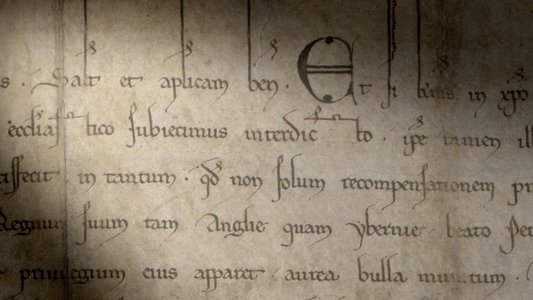 s. Salt et aplicam ben. Et si bēnis in xpo
ecclias tico subiecimus interdic to. ipe tamen ill
tisfecit. in tantum. qd non solum recompensationem pr
Regnum suum tam Anglie quam ybernie beato Pet
priuilegium eius apparet aurea bulla munitum.